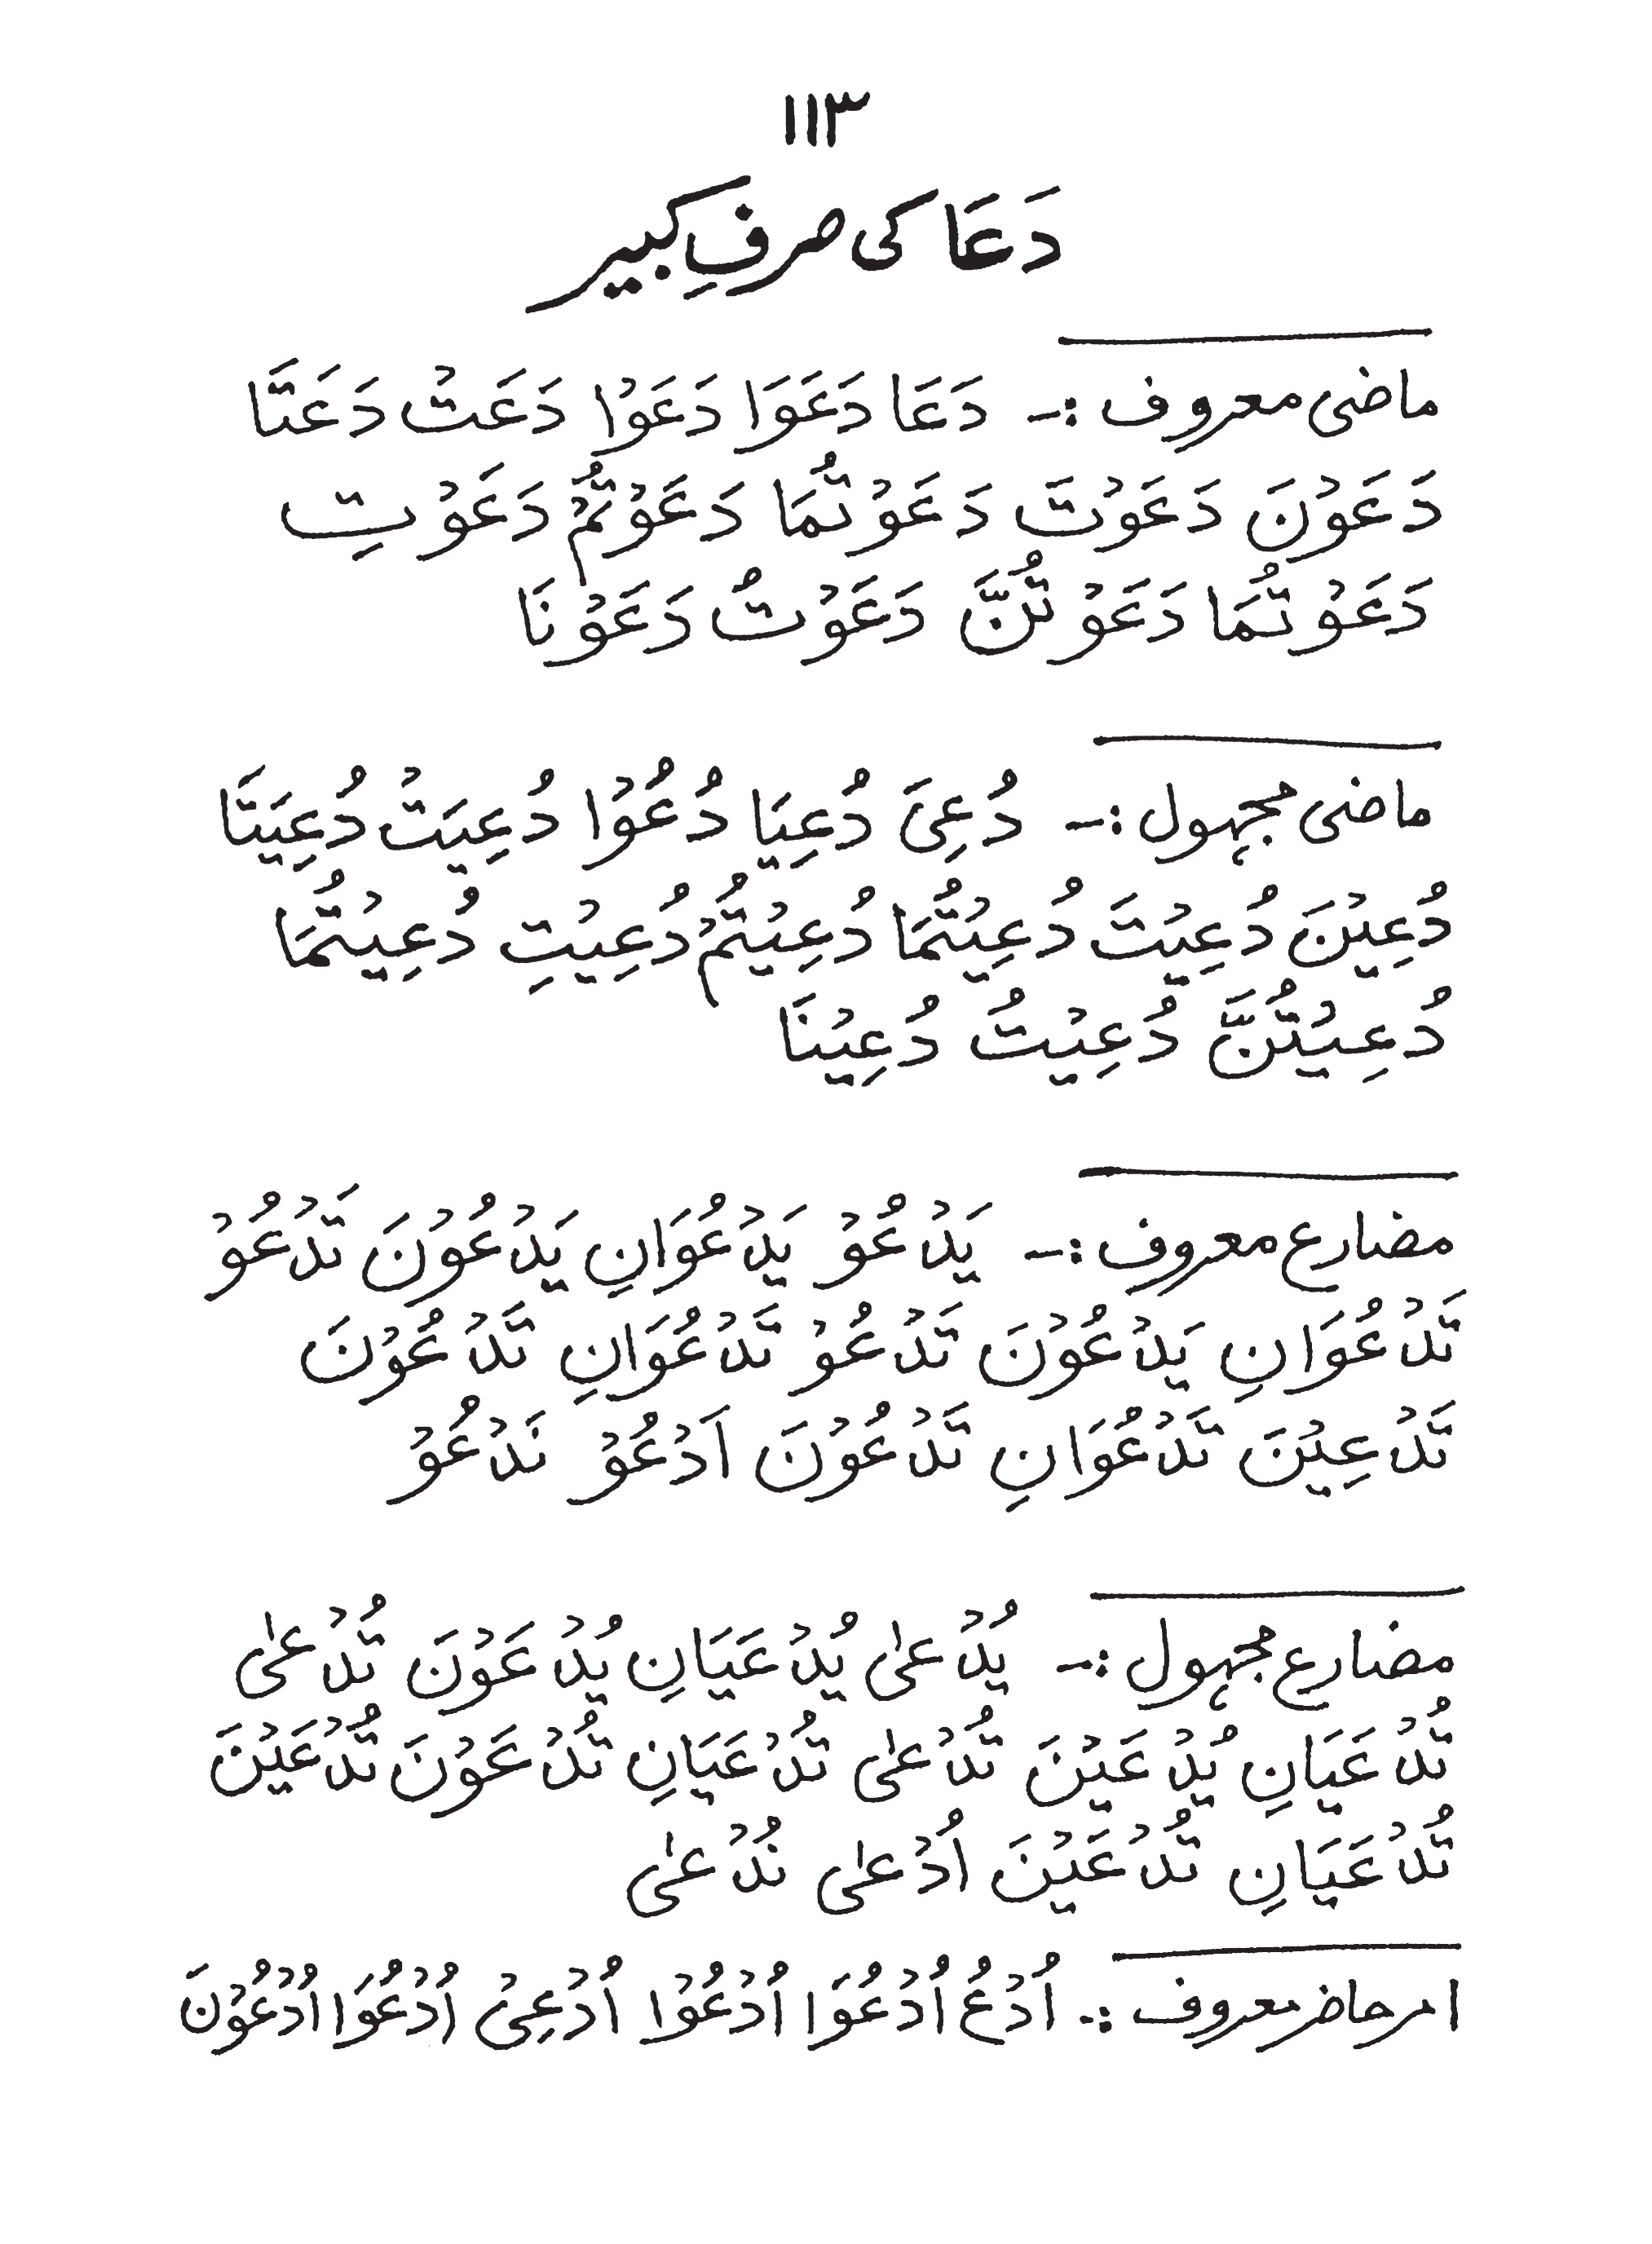 ۱۱۳
دَعَا کی صرفِ کبیر
ماضی معروف :- دَعَا دَعَوَا دَعَوْا دَعَتْ دَعَتَا
دَعَوْنَ دَعَوْتَ دَعَوْتُمَا دَعَوْتُمْ دَعَوْتِ
دَعَوْتُمَا دَعَوْتُنَّ دَعَوْتُ دَعَوْنَا
ماضی مجہول :- دُعِیَ دُعِیَا دُعُوْا دُعِیَتْ دُعِیَتَا
دُعِیْنَ دُعِیْتَ دُعِیْتُمَا دُعِیْتُمْ دُعِیْتِ دُعِیْتُمَا
دُعِیْتُنَّ دُعِیْتُ دُعِیْنَا
مضارع معروف :- یَدْعُوْ یَدْعُوَانِ یَدْعُوْنَ تَدْعُوْ
تَدْعُوَانِ یَدْعُوْنَ تَدْعُوْ تَدْعُوَانِ تَدْعُوْنَ
تَدْعِیْنَ تَدْعُوَانِ تَدْعُوْنَ اَدْعُوْ نَدْعُوْ
مضارع مجہول :- یُدْعٰی یُدْعَیَانِ یُدْعَوْنَ تُدْعٰی
تُدْعَیَانِ یُدْعَیْنَ تُدْعٰی تُدْعَیَانِ تُدْعَوْنَ تُدْعَیْنَ
تُدْعَیَانِ تُدْعَیْنَ اُدْعٰی نُدْعٰی
امر حاضر معروف :- اُدْعُ اُدْعُوَا اُدْعُوْا اُدْعِیْ اُدْعُوَا اُدْعُوْنَ